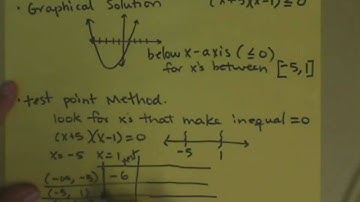 • Graphical Solution
(x+5)(x-1) ≤ 0
below x-axis (≤0)
for x's between [-5,1]
• test point Method.
look for x's that make inequal =0
(x+5)(x-1)=0
x=-5 x=1
-5 1
test
(-∞, -5) -6
(-5, 1)